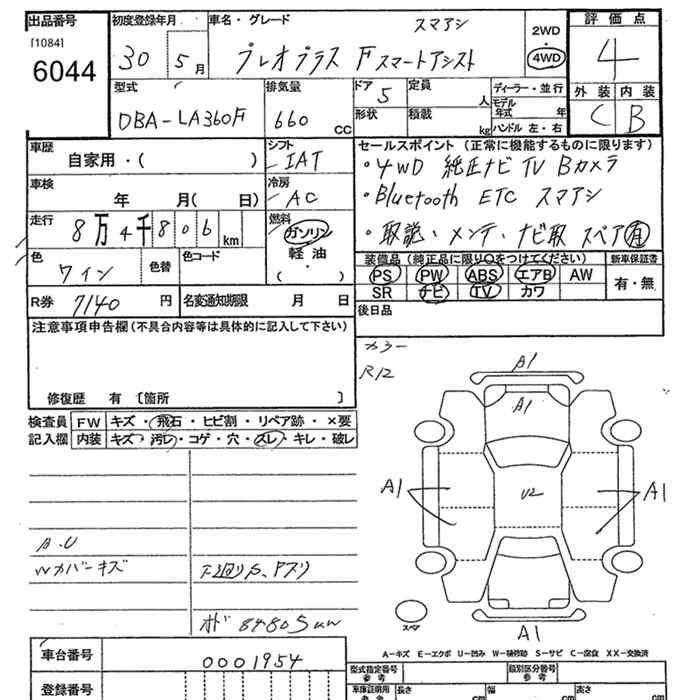 出品番号
[1084]
6044
初度登録年月
30 5月
車名・グレード
スマアシ
プレオプラス F スマートアシスト
2WD
・
4WD
評価点
4
外装 内装
C B
型式
DBA-LA360F
排気量
660 CC
ドア
5
形状
定員
人
積載
kg
ディーラー・並行
モデル年式 年
ハンドル 左・右
車歴
自家用・( )
シフト
IAT
車検
年 月( 日)
冷房
AC
走行
8万4千806km
燃料
ガソリン
軽油
( )
色
ワイン
色替
色コード
R券 7140円
名変通知期限 月 日
セールスポイント (正常に機能するものに限ります)
・4WD 純正ナビ TV Bカメラ
・Bluetooth ETC スマアシ
・取説・メンテ・ナビ取 スペア有
装備品(純正品に限り○をつけてください)
新車保証書
PS PW ABS エアB AW
SR ナビ TV カワ
有・無
後日品
注意事項申告欄(不具合内容等は具体的に記入して下さい)
修復歴 有 〔箇所 〕
カラー
R12
検査員記入欄
FW キズ・飛石・ヒビ割・リペア跡・×要
内装 キズ・汚レ・コゲ・穴・スレ・キレ・破レ
A.U
Wカバーキズ
下廻りS、アズリ
オド 84805
A1
A1
A1
U2
A1
スペア
A1
A-キズ E-エクボ U-凹み W-補修跡 S-サビ C-腐食 XX-交換済
車台番号
0001954
登録番号
型式指定番号
参考
類別区分番号
参考
車庫証明用
参考
長さ cm
幅 cm
高さ cm